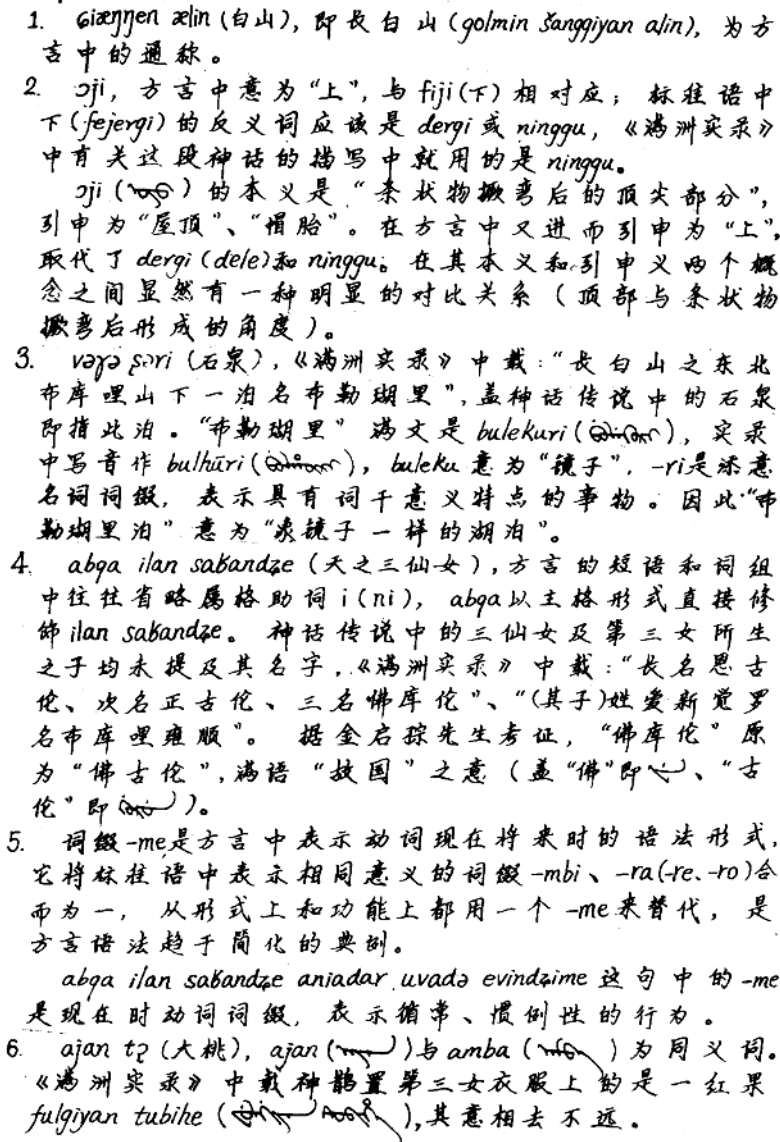 1. ɕiæŋŋen ælin (白山), 即长白山 (golmin šanggiyan alin), 为方
言中的通称。
2. ɔji, 方言中意为“上”, 与 fiji (下) 相对应; 标准语中
下 (fejergi) 的反义词应该是 dergi 或 ninggu, 《满洲实录》
中有关这段神话的描写中就用的是 ninggu。
ɔji ( ) 的本义是“条状物撅弯后的顶尖部分”,
引申为“屋顶”、“帽胎”。在方言中又进而引申为“上”,
取代了 dergi (dele) 和 ninggu。在其本义和引申义两个概
念之间显然有一种明显的对比关系 (顶部与条状物
撅弯后形成的角度)。
3. vəɣə ʂəri (石泉), 《满洲实录》中载:“长白山之东北
布库哩山下一泊名布勒瑚里”, 盖神话传说中的石泉
即指此泊。“布勒瑚里”满文是 bulekuri ( ), 实录
中写音作 bulhūri ( ), buleku 意为“镜子”, -ri是添意
名词词缀, 表示具有词干意义特点的事物。因此“布
勒瑚里泊”意为“象镜子一样的湖泊”。
4. abqa ilan saʁandʐe (天之三仙女), 方言的短语和词组
中往往省略属格助词 i (ni), abqa 以主格形式直接修
饰 ilan saʁandʐe。神话传说中的三仙女及第三女所生
之子均未提及其名字, 《满洲实录》中载:“长名恩古
伦、次名正古伦、三名佛库伦”、“(其子)姓爱新觉罗
名布库哩雍顺”。据金启孮先生考证, “佛库伦”原
为“佛古伦”, 满语“故国”之意 (盖“佛”即 、“古
伦”即 )。
5. 词缀-me是方言中表示动词现在将来时的语法形式,
它将标准语中表示相同意义的词缀 -mbi、-ra(-re、-ro)合
而为一, 从形式上和功能上都用一个 -me来替代, 是
方言语法趋于简化的典例。
abqa ilan saʁandʐe aniadar uvadə evindʐime 这句中的 -me
是现在时动词词缀, 表示循常、惯例性的行为。
6. ajan (大桃), ajan ( ) 与 amba ( ) 为同义词。
《满洲实录》中载神鹊置第三女衣服上的是一红果
fulgiyan tubihe ( ), 其意相去不远。